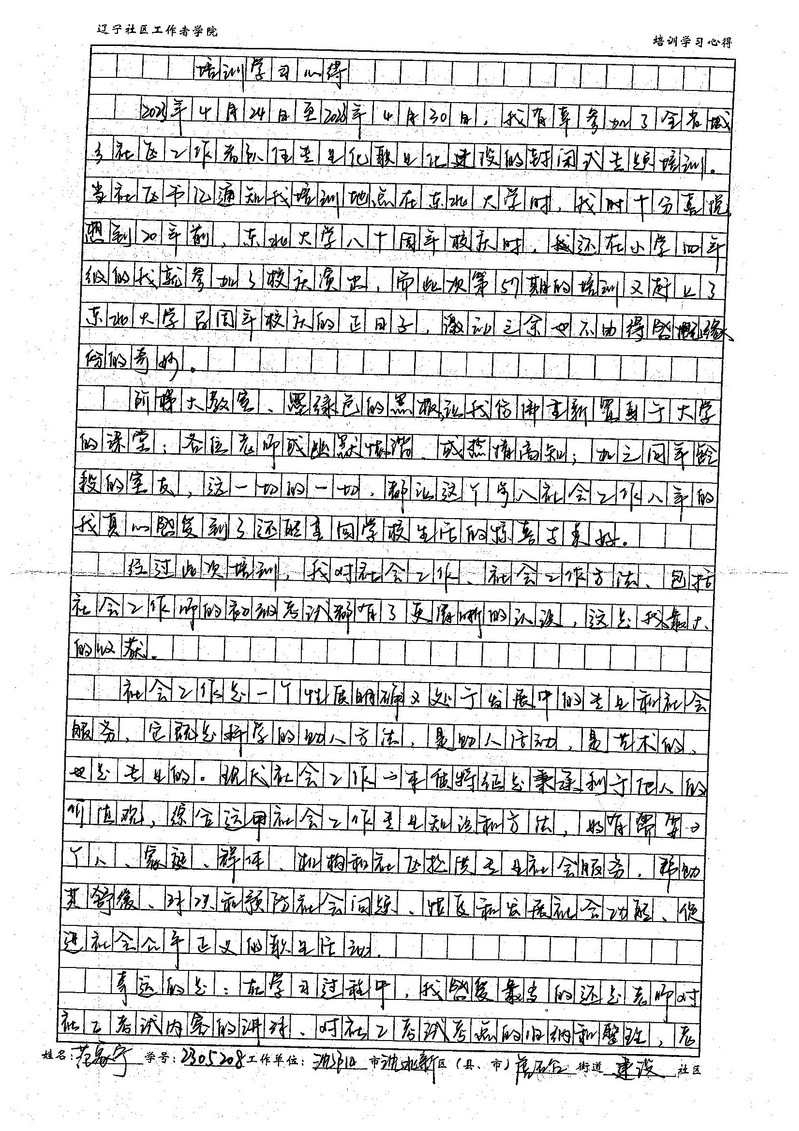 辽宁社区工作者学院 培训学习心得
培训学习心得
2023年4月24日至2023年4月30日，我有幸参加了全省城
乡社区工作者队伍专业化职业化建设的封闭式专题培训。
当社区书记通知我培训地点在东北大学时，我时十分喜悦，
想到20年前，东北大学八十周年校庆时，我还在小学四年
级的我就参加了校庆演出，而此次第57期的培训又赶上了
东北大学百周年校庆的正日子，激动之余也不由得感慨缘
份的奇妙。
阶梯大教室、墨绿色的黑板让我仿佛重新置身于大学
的课堂；各位老师或幽默诙谐、或热情高知；加之同年龄
段的室友，这一切的一切，都让这个步入社会工作八年的
我真心感受到了还能重回学校生活的惊喜与美好。
经过此次培训，我对社会工作、社会工作方法、包括
社会工作师的初级考试都有了更清晰的认识，这是我最大
的收获。
社会工作是一个性质明确又处于发展中的专业和社会
服务，它既是科学的助人方法，是助人活动，是艺术的，
也是专业的。现代社会工作一本质特征是秉承利于他人的
价值观，综合运用社会工作专业知识和方法，为有需要
个人、家庭、群体、机构和社区提供专业社会服务，帮助
其舒缓、解决和预防社会问题、恢复和发展社会功能、促
进社会公平正义的职业活动。
幸运的是：在学习过程中，我感受最大的还是老师对
社工考试内容的讲解、对社工考试考点的归纳和整理，老
姓名： 学号：2305208 工作单位：沈阳 市 沈北新 区（县、市） 街道 建设 社区